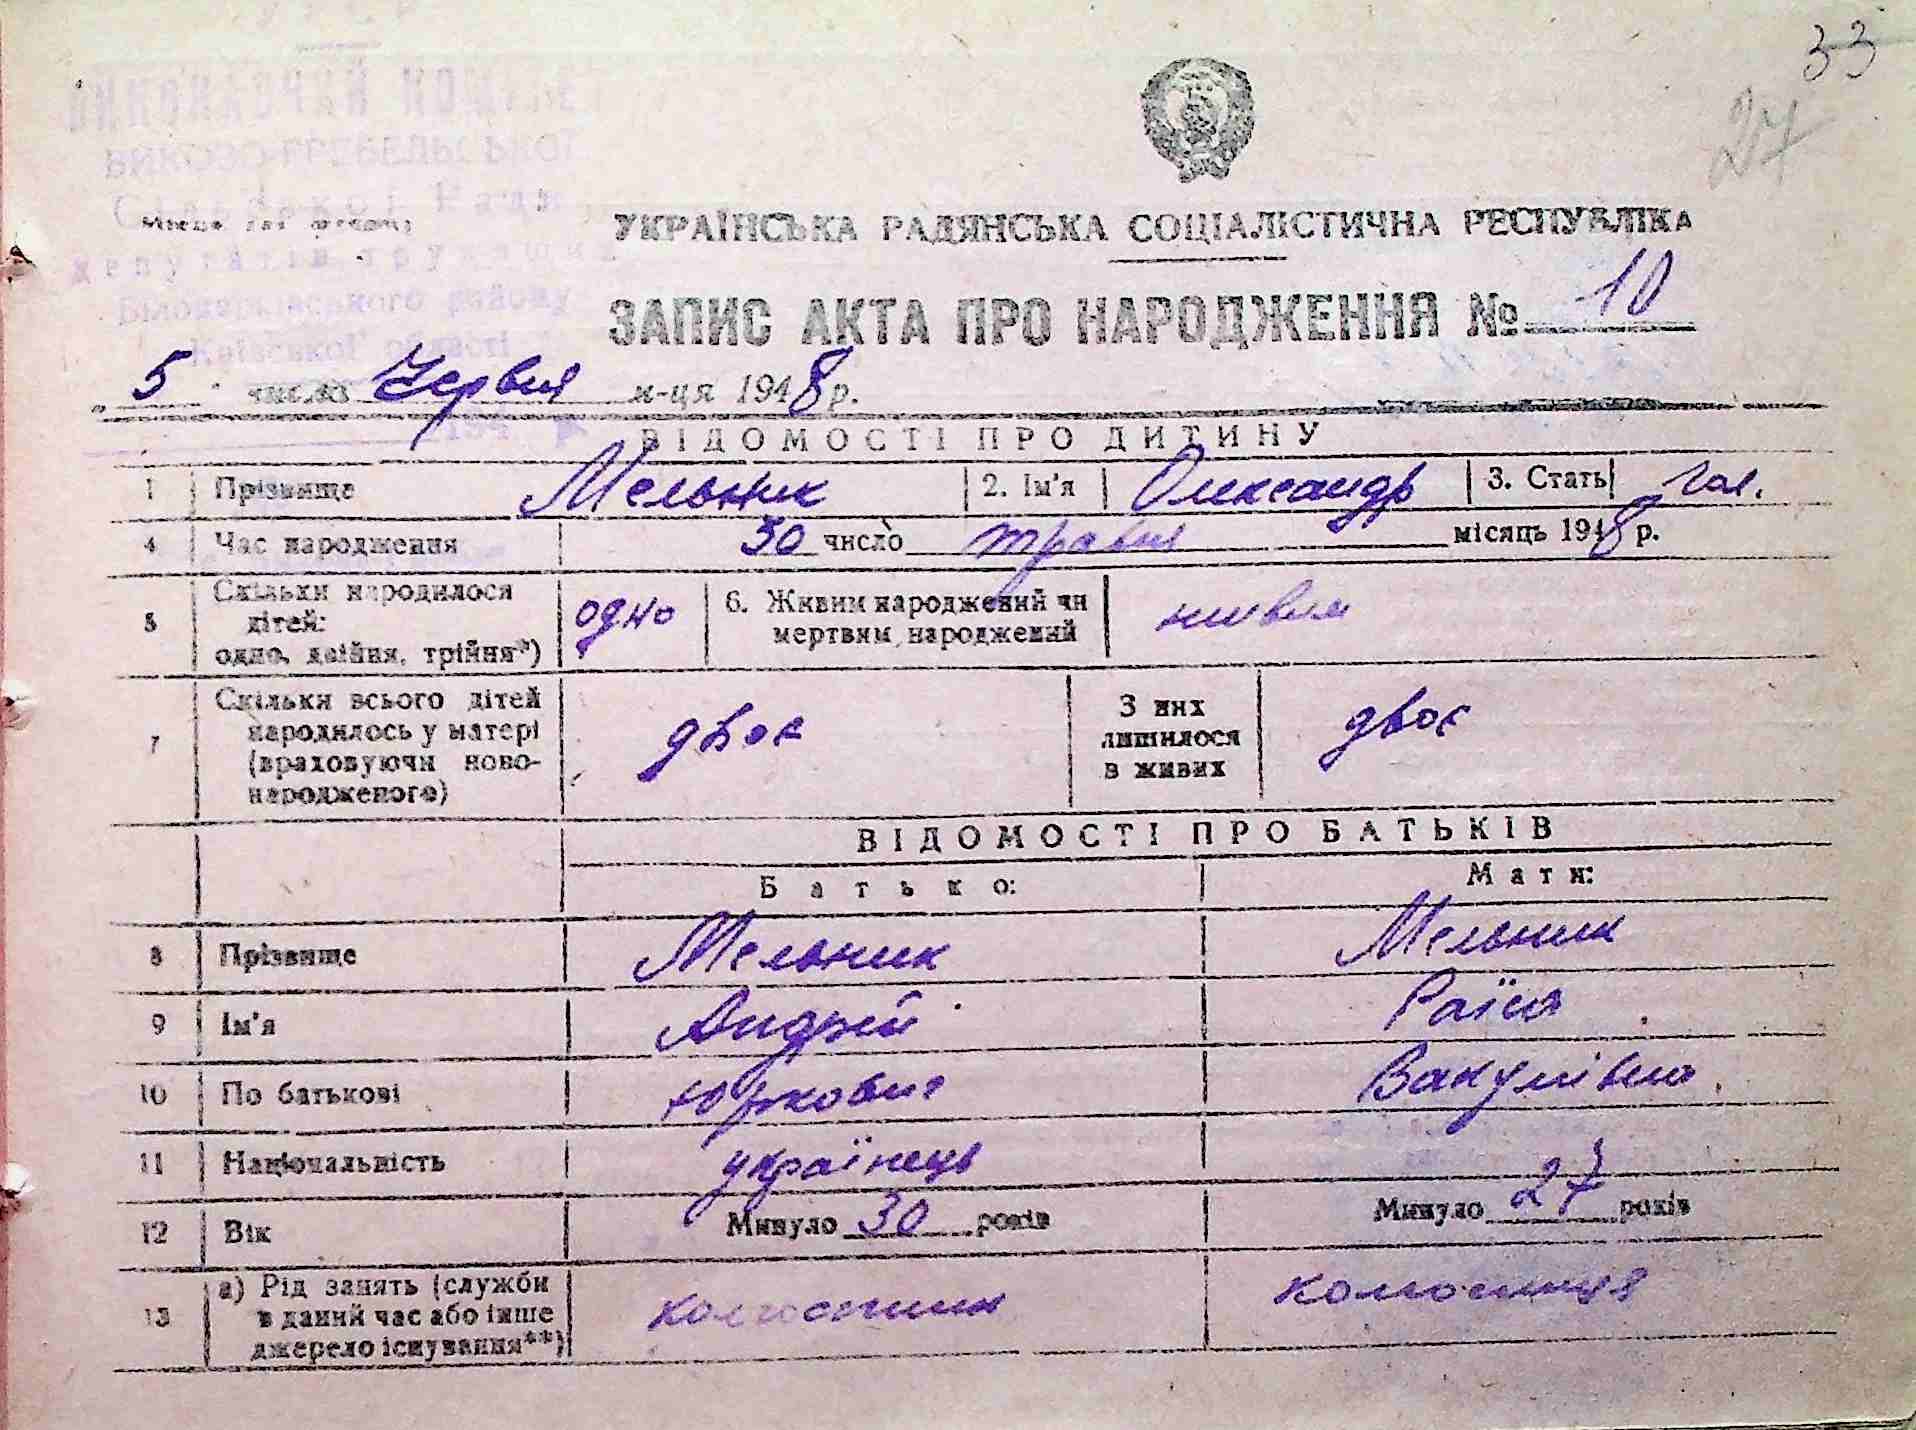 33
27
ВИКОНАВЧИЙ КОМІТЕТ
БИКОВО-ГРЕБЕЛЬСЬКОЇ
Сільської Ради
депутатів трудящих
Білоцерківського району
Київської області
Місце для штампу
УКРАЇНСЬКА РАДЯНСЬКА СОЦІАЛІСТИЧНА РЕСПУБЛІКА
ЗАПИС АКТА ПРО НАРОДЖЕННЯ № 10
„5“ число Червня м-ця 1948 р.
ВІДОМОСТІ ПРО ДИТИНУ
1 Прізвище Мельник 2. Ім'я Олександр 3. Стать чол.
4 Час народження 30 число травня місяць 1948 р.
5 Скільки народилося дітей: одно, двійня, трійня*) одно 6. Живим народжений чи мертвим народжений живим
7 Скільки всього дітей народилось у матері (враховуючи новонародженого) двоє З них лишилося в живих двоє
ВІДОМОСТІ ПРО БАТЬКІВ
Батько: Мати:
8 Прізвище Мельник Мельник
9 Ім'я Андрій Раїса
10 По батькові Юркович Вакулівна
11 Національність українець
12 Вік Минуло 30 років Минуло 27 років
13 а) Рід занять (служби в даний час або інше джерело існування**) колгоспник колгоспниця